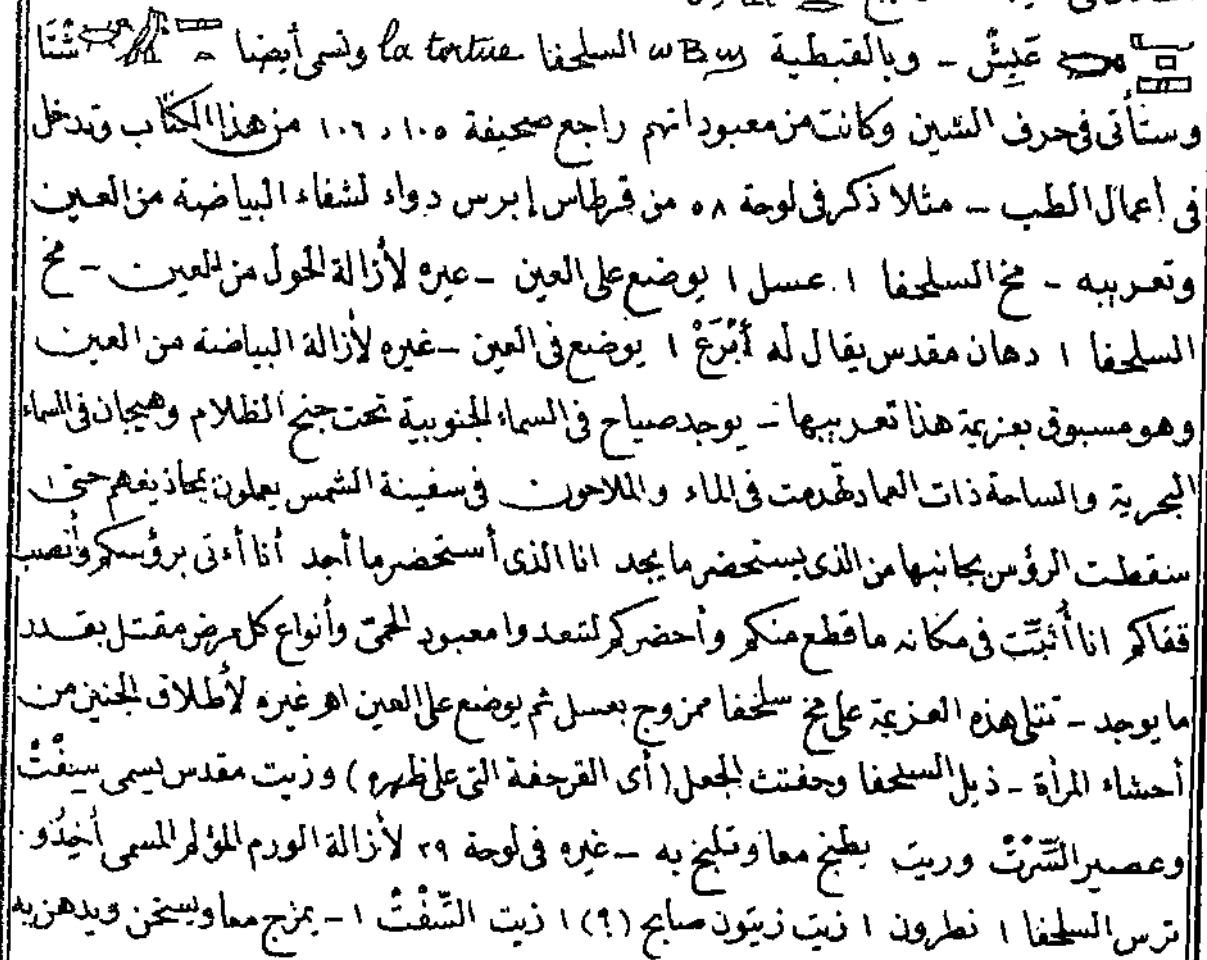 عَبِشْ – وبالقبطية السلحفا la tortue وتسمى أيضا شْتَا
وستأتى فى حرف الشين وكانت من معبوداتهم راجع صحيفة ١٠٥ , ١٠٦ من هذا الكتاب وتدخل
فى أعمال الطب – مثلا ذكر فى لوحة ٥٨ من قرطاس إبرس دواء لشفاء البياضة من العين
وتعريبه – مخ السلحفا ١ . عسل ١ يوضع على العين – غيره لأزالة الحول من العين – مخ
السلحفا ١ دهان مقدس يقال له أَبْرَعْ ١ يوضع فى العين – غيره لأزالة البياضة من العين
وهو مسبوق بعزيمة هذا تعريبها – يوجد صياح فى السماء الجنوبية تحت جنح الظلام وهيجان فى السماء
البحرية والساحة ذات العماد تهدمت فى الماء والملاحون فى سفينة الشمس يعملون بمجاذيفهم حتى
سقطت الرؤس بجانبها من الذى يستحضر ما يجد انا الذى أستحضر ما أجد أنا أءتى برؤسكم وأنصب
قفاكم انا أُثَبِّت فى مكانه ما قطع منكم وأحضركم لتبعدوا معبود الحمى وأنواع كل مرض مقتل بقدر
ما يوجد – تتلى هذه العزيمة على مخ سلحفا ممزوج بعسل ثم يوضع على العين اهـ غيره لأطلاق الجنين من
أحشاء المرأة – ذبل السلحفا وجفتث الجعل (أى القرحفة التى على ظهره) وزيت مقدس يسمى سِفْتْ
وعصير السِّرْتْ وزيت يطبخ معا وتلبخ به – غيره فى لوحة ٢٩ لأزالة الورم المؤلم المسمى أُخِدُو
ترس السلحفا ١ نطرون ١ زيت زيتون صابح (؟) ١ زيت السِّفْتْ ١ – يمزج معا ويسخن ويدهن به